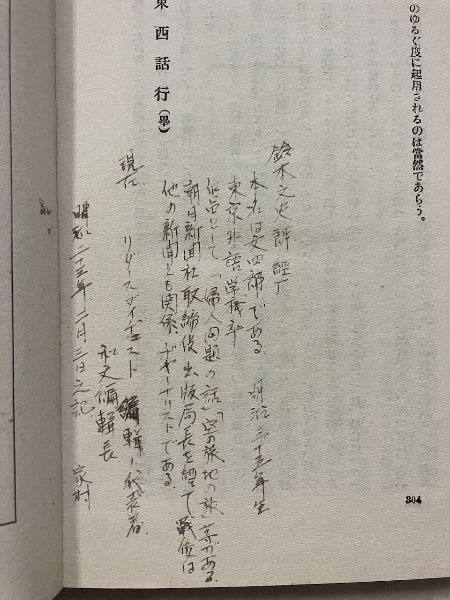 のゆるぐ度に起用されるのは當然であらう。
東西話行(畢)
鈴木文史朗 経了
本名は文四郎である 明治二十三年生
東京外語学校卒
著書として「婦人問題の話」「空の旅地の旅」等がある
朝日新聞社取締役出版局長を経て戦後は
他の新聞とも関係、ジャーナリストである
現在
リダースダイヂェスト 編輯 代表者
和文編輯長
昭和二十三年 二月三日之記
304